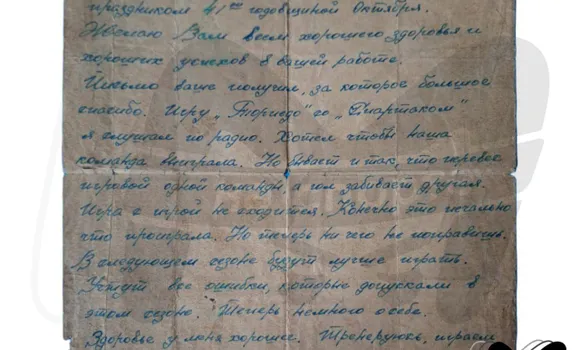 праздником 41ой годовщиной Октября.
Желаю Вам всем хорошего здоровья и
хороших успехов в вашей работе.
Письмо ваше получил, за которое большое
спасибо. Игру „Торпедо" со „Спартаком"
я слушал по радио. Хотел чтобы наша
команда выиграла. Но бывает и так, что игровое
игровой одной команды, а гол забивает другая.
Игра с игрой не сходится. Конечно это печально
что проиграла. Но теперь ни чего не поправишь.
В следующем сезоне будут лучше играть.
Учтут все ошибки, которые допускали в
этом сезоне. Теперь немного о себе.
Здоровье у меня хорошее. Тренируюсь, играем